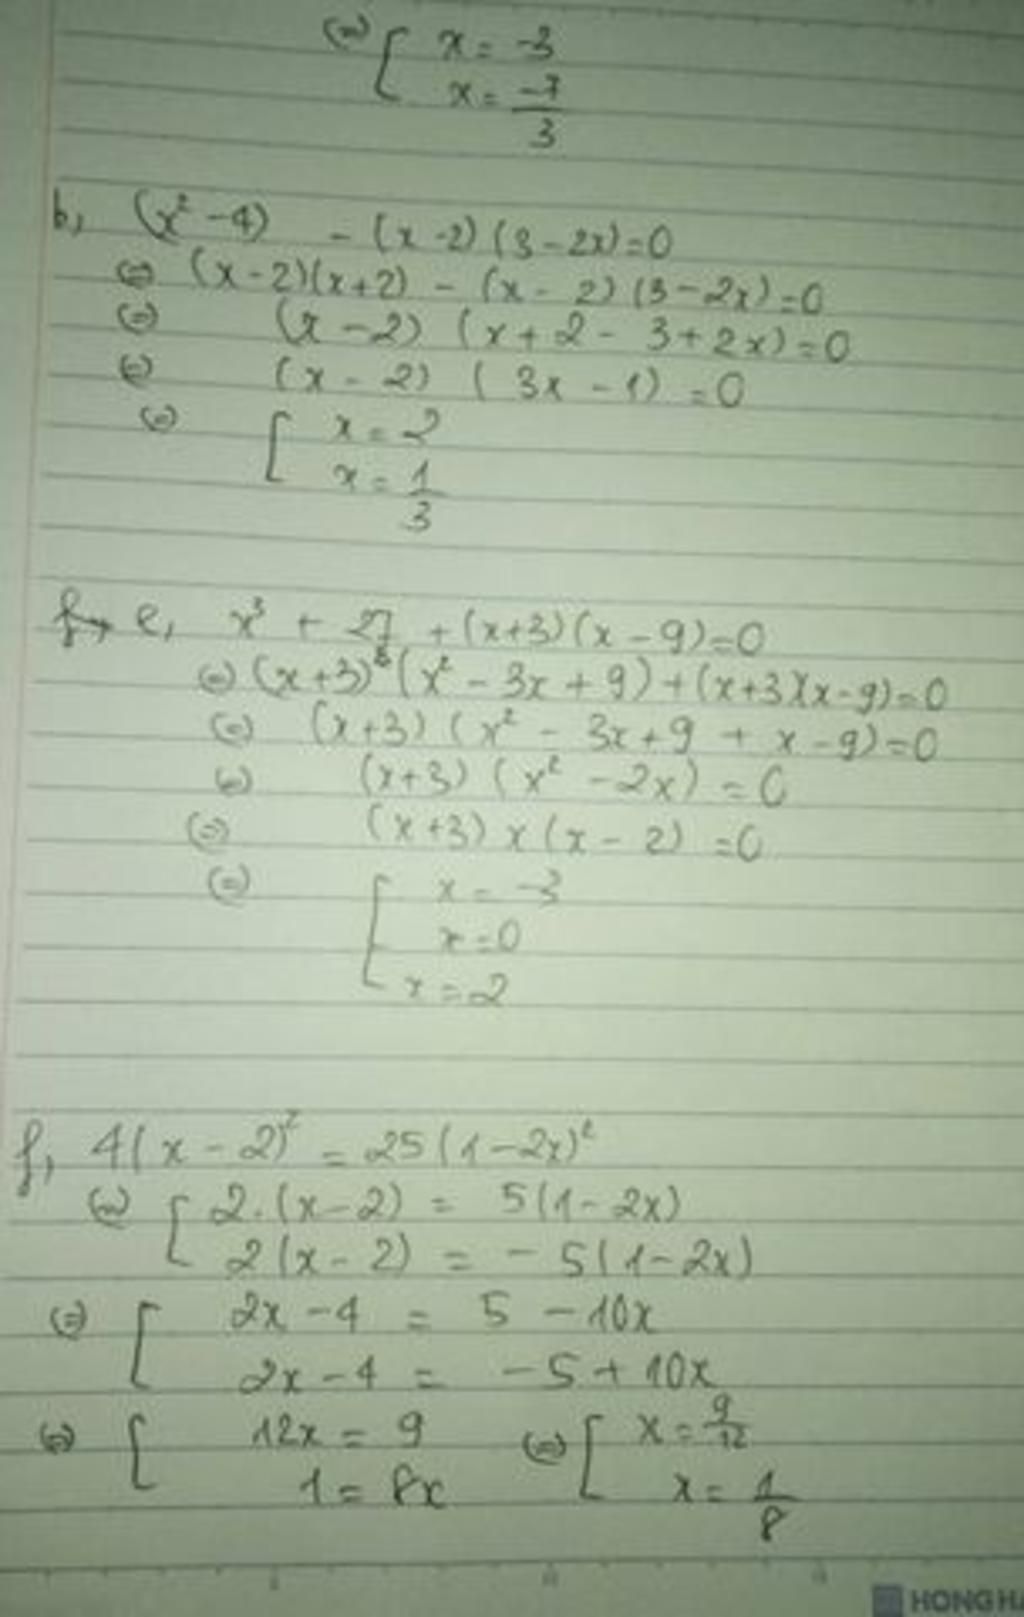 (=) [ x = -3
x = -7/3
b, (x² - 4) - (x - 2)(3 - 2x) = 0
(=) (x - 2)(x + 2) - (x - 2)(3 - 2x) = 0
(=) (x - 2) (x + 2 - 3 + 2x) = 0
(=) (x - 2) ( 3x - 1) = 0
(=) [ x = 2
x = 1/3
e, x³ + 27 + (x+3)(x - 9) = 0
(=) (x+3) (x² - 3x + 9) + (x+3)(x - 9) = 0
(=) (x+3) (x² - 3x + 9 + x - 9) = 0
(=) (x+3) (x² - 2x) = 0
(=) (x+3) x (x - 2) = 0
(=) [ x = -3
x = 0
x = 2
f, 4(x - 2)² = 25(1 - 2x)²
(=) [ 2.(x - 2) = 5(1 - 2x)
2(x - 2) = - 5(1 - 2x)
(=) [ 2x - 4 = 5 - 10x
2x - 4 = - 5 + 10x
(=) [ 12x = 9 (=) [ x = 9/12
1 = 8x x = 1/8
HONG HA